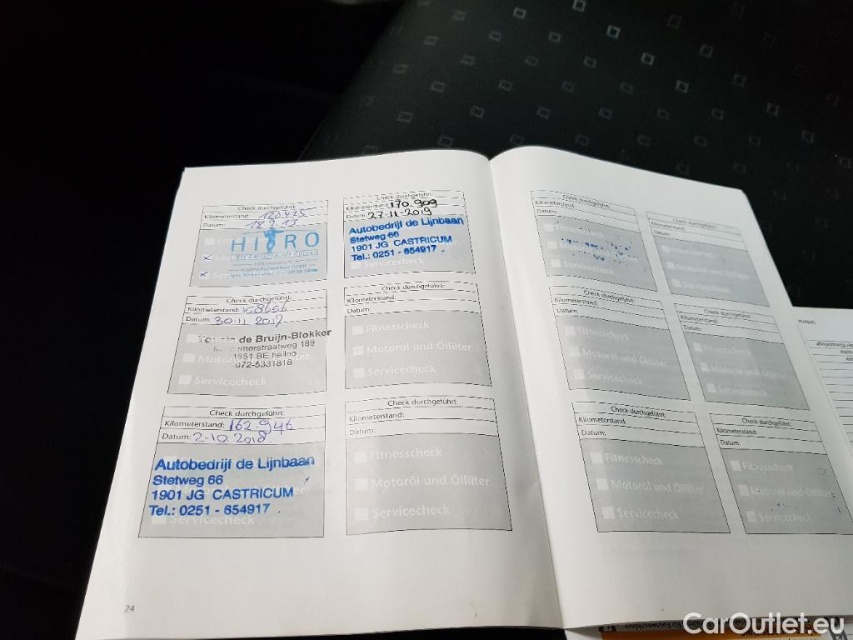 Check durchgeführt:
Kilometerstand:
Datum:
HIRO
Check durchgeführt:
Kilometerstand:
Datum: 30-11 2017
de Bruijn-Blokker
1851 BE heiloo
072-5331818
Servicecheck
Check durchgeführt:
Kilometerstand: 162.946
Datum: 2-10 2018
Autobedrijf de Lijnbaan
Stetweg 66
1901 JG CASTRICUM
Tel.: 0251 - 654917
Servicecheck
24
Check durchgeführt:
170.909
27-11-2019
Autobedrijf de Lijnbaan
Stetweg 66
1901 JG CASTRICUM
Tel.: 0251 - 654917
Servicecheck
Check durchgeführt:
Kilometerstand:
Datum:
Fitnesscheck
Motoröl und Ölfilter
Servicecheck
Check durchgeführt:
Kilometerstand:
Datum:
Fitnesscheck
Motoröl und Ölfilter
Servicecheck
Check durchgeführt:
Kilometerstand:
Datum:
Check durchgeführt:
Kilometerstand:
Datum:
Fitnesscheck
Motoröl und Ölfilter
Servicecheck
Check durchgeführt:
Kilometerstand:
Datum:
Fitnesscheck
Motoröl und Ölfilter
Servicecheck
Check durchgeführt:
Kilometerstand:
Datum:
Check durchgeführt:
Kilometerstand:
Datum:
Check durchgeführt:
Kilometerstand:
Datum:
Fitnesscheck
Motoröl und Ölfilter
Servicecheck
CarOutlet.eu